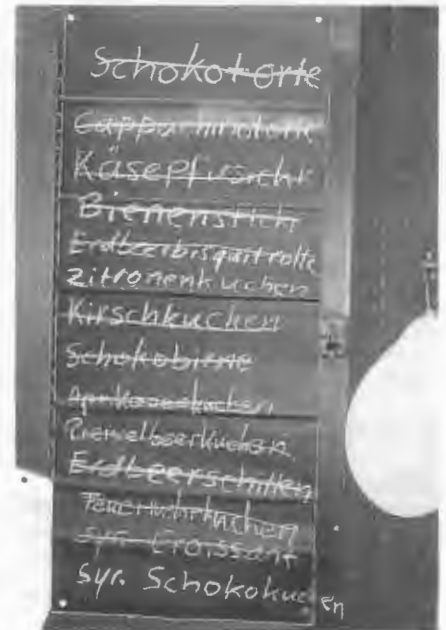 Schokotorte
Cappuchinotorte
Käsepfirsicht
Bienenstich
Erdbeerbisquitrolle
Zitronenkuchen
Kirschkuchen
Schokobirne
Aprikosenkuchen
Preiselbeerkuchen
Erdbeerschnitten
Feuerwehrkuchen
Syr. Croissant
Syr. Schokokuchen